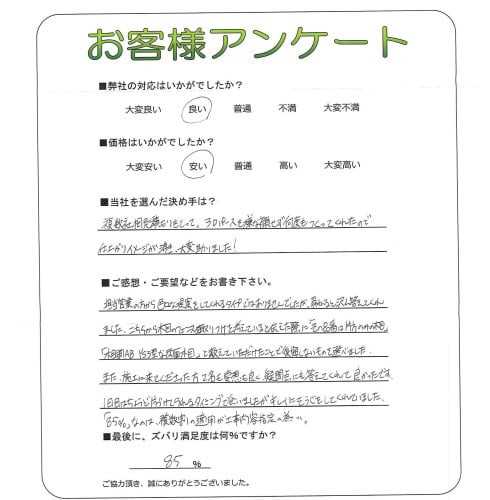 お客様アンケート
■弊社の対応はいかがでしたか？
大変良い 良い 普通 不満 大変不満
■価格はいかがでしたか？
大変安い 安い 普通 高い 大変高い
■当社を選んだ決め手は？
複数社相見積もりをとって、3Dパースを嫌な顔せず何度もつくってくれたので
仕上がりイメージが湧き、大変助かりました！
■ご感想・ご要望などをお書き下さい。
担当営業の方から色々な提案をしてくれるタイプではありませんでしたが、尋ねると答えてくれ
ました。こちらから木目の
教えていただけたことで後悔しないもので選べました。
また、施工に来てくださった方で名も愛想も良く、疑問点にも答えてくれて良かったです。
1日目はちらほら片づけてられるタイミングで会いましたがキレイにそうじをしてくれていました。
「85%」なのは、複数割の適用が工事内容指定の為…。
■最後に、ズバリ満足度は何％ですか？
85 ％
ご協力頂き、誠にありがとうございました。